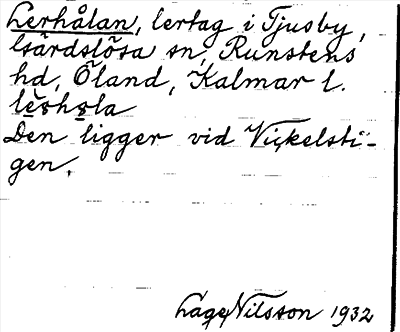 Lerhålan, lertag i Tjusby,
Gärdslösa sn, Runstens
hd, Öland, Kalmar l.
lẹshọla
Den ligger vid Vickelsti-
gen.
Lage Nilsson 1932